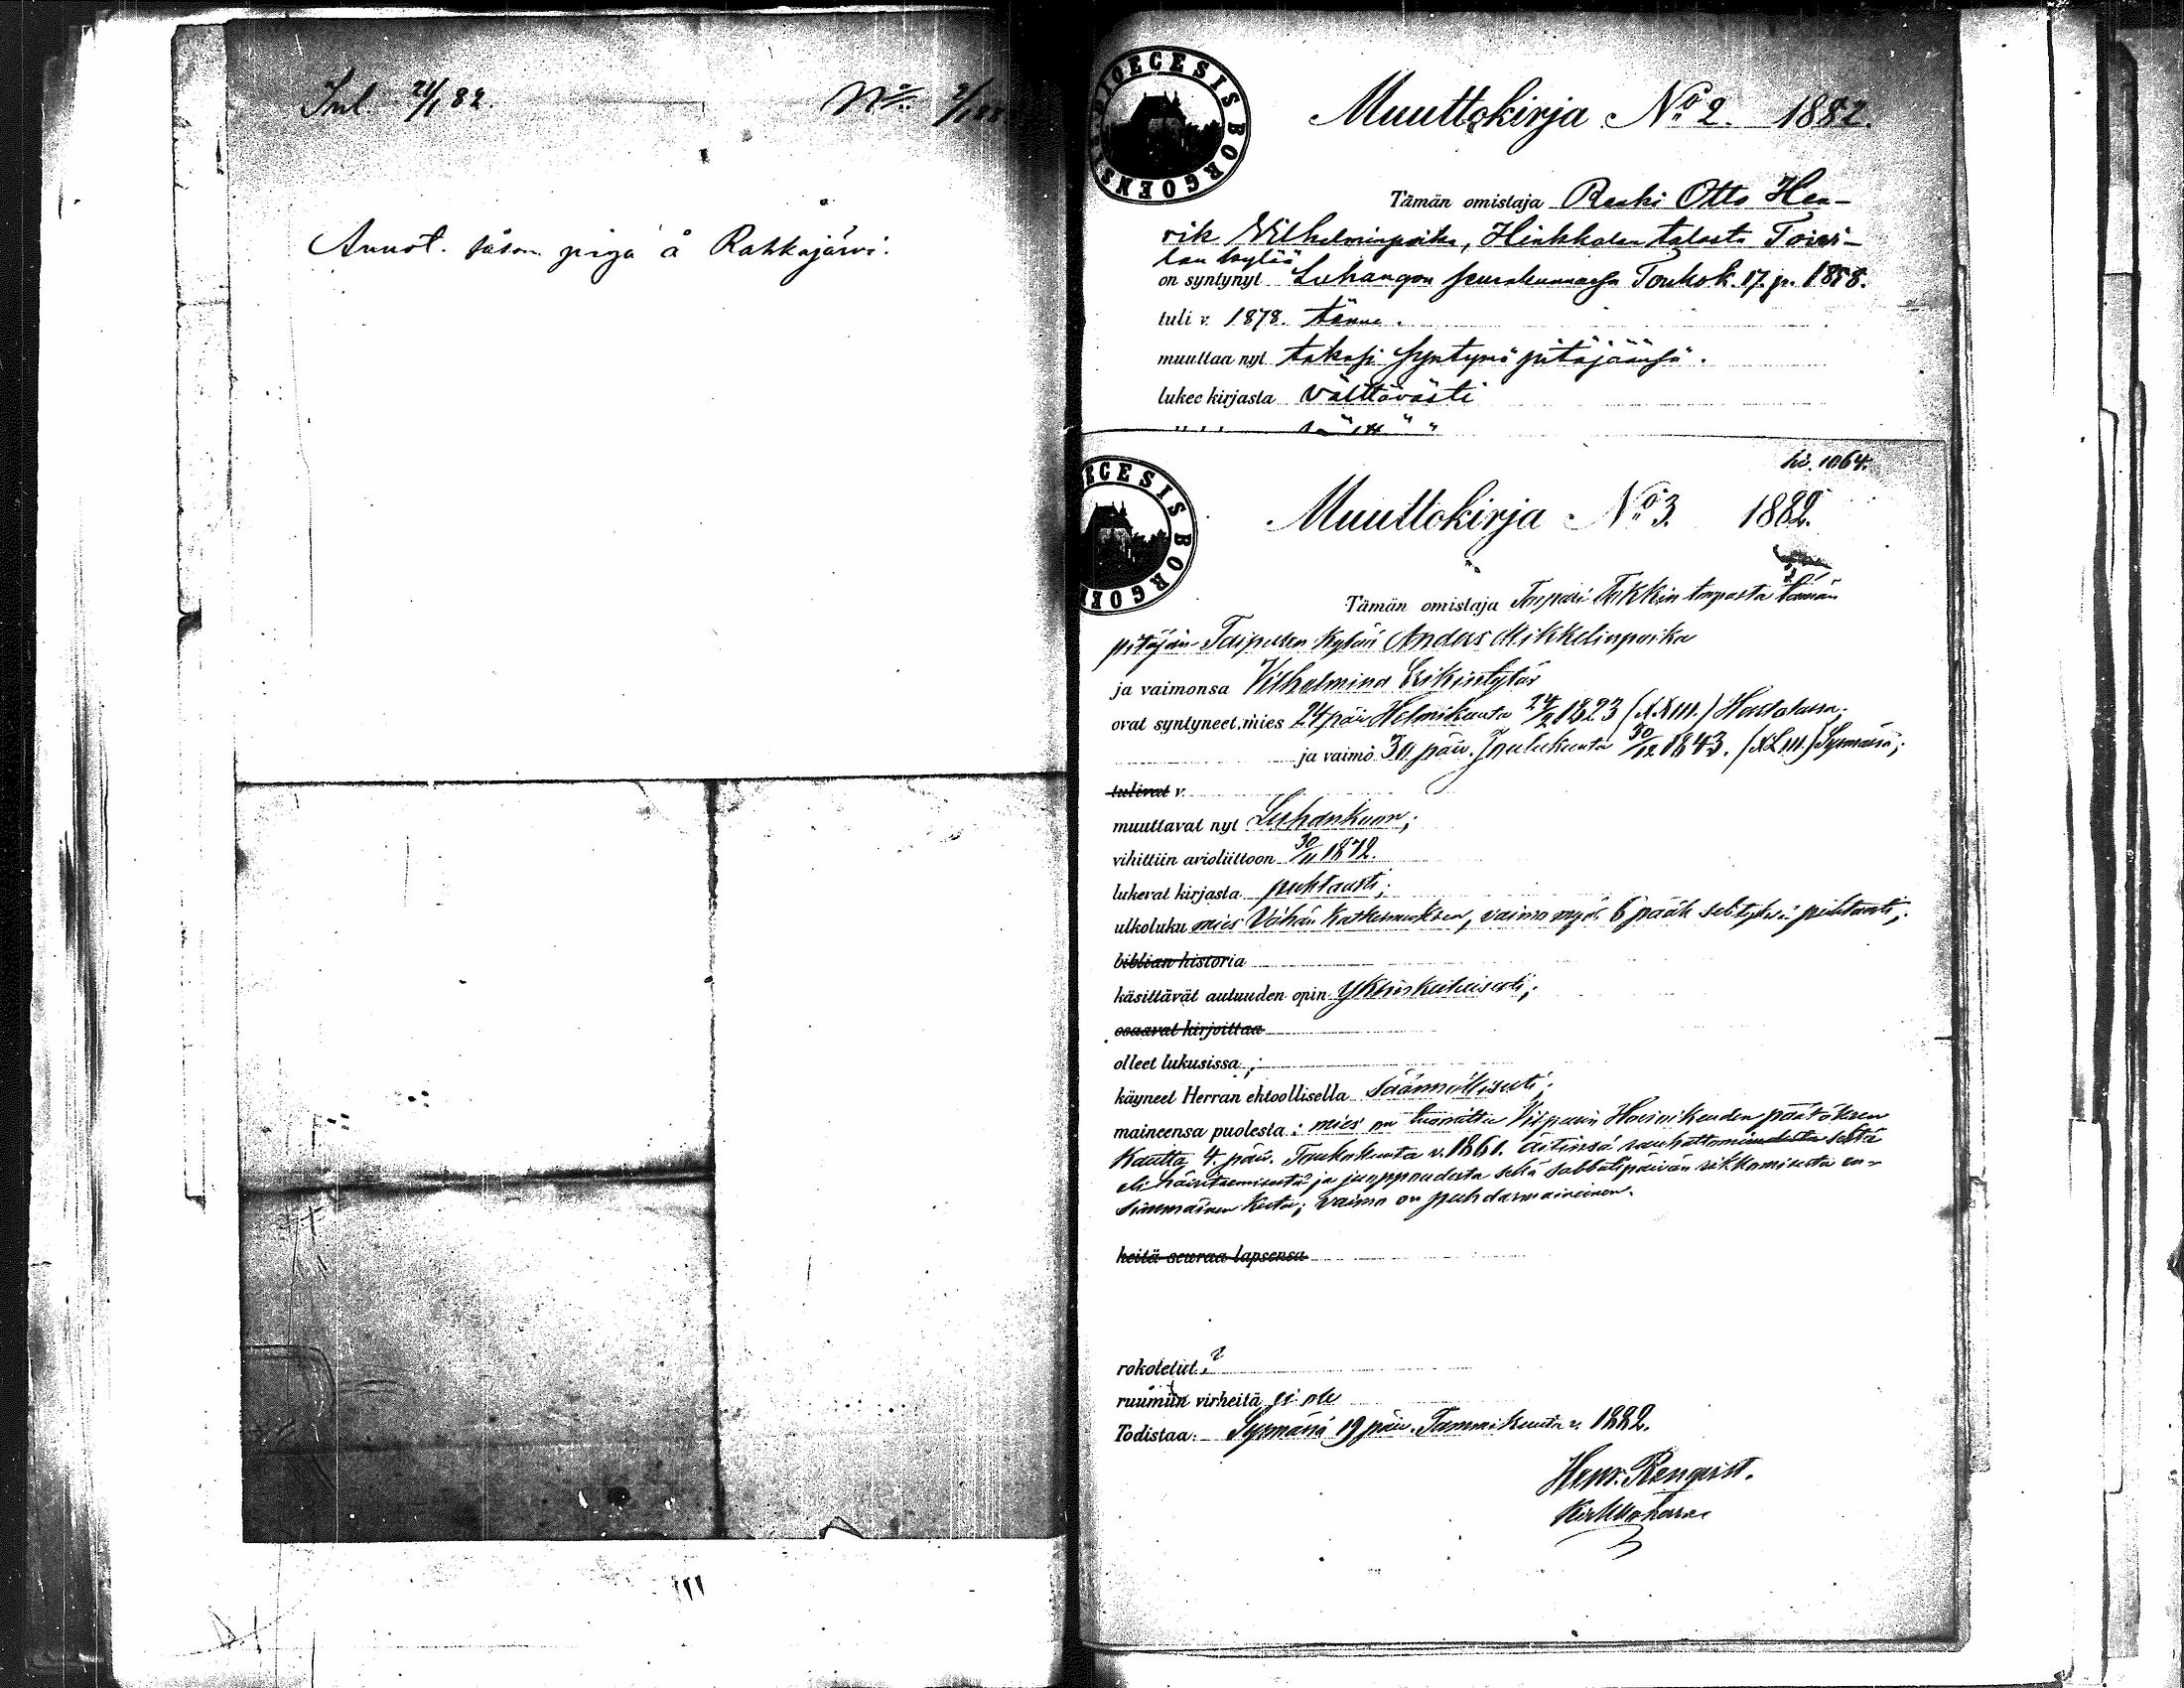 Inl. 21/1 82.
No 2/188
Annot. såsom piga å Rahkajärvi.
DIOECESIS BORGOENSIS
Muuttokirja No 2. 1882.
Tämän omistaja Renki Otto Hen-
rik Wilhelminpoika, Hinkkalan talosta Toivi-
lan kylää
on syntynyt Luhangon seurakunnassa Toukok. 17 p. 1858.
tuli v. 1878. tänne.
muuttaa nyt takasi syntymä pitäjäänsä.
lukee kirjasta välttävästi
DIOECESIS BORGOENSIS
hi. 1064.
Muuttokirja No 3. 1882.
Tämän omistaja Torpari torpasta tämän
pitäjän Taipaleen kylää Anders Mikkelinpoika
ja vaimonsa Vilhelmina Erikintytär
ovat syntyneet, mies 24 päiv Helmikuuta 24/2 1823 (XXIII.) Hartolassa;
ja vaimo 30 päiv. Joulukuuta 30/12 1843. (XLIII.) Sysmässä;
tulivat v.
muuttavat nyt Luhankaan;
vihittiin avioliittoon 30/11 1872.
lukevat kirjasta puhtaasti;
ulkoluku mies Vähän Katkesmuksen, vaimo myös 6 pääk selityksiä puhtaasti;
biblian historia
käsittävät autuuden opin yksinkertaisesti;
osaavat kirjoittaa
olleet lukusissa;
käyneet Herran ehtoollisella säännöllisesti;
maineensa puolesta: mies on tuomittu Viipurin Hovioikeuden päätöksen
kautta 4. päiv. Toukokuuta v. 1861. äitinsä rauhattomuudesta sekä
eli häiritsemisestä ja juoppoudesta sekä sabbatipäivän rikkomisesta en-
simmäinen kerta; vaimo on puhdasmaineinen.
heitä seuraa lapsensa
rokotetut?
ruumiin virheitä ei ole
Todistaa: Sysmässä 19 päiv. Tammikuuta v. 1882.
Henr. Renqvist.
Kirkkoherra